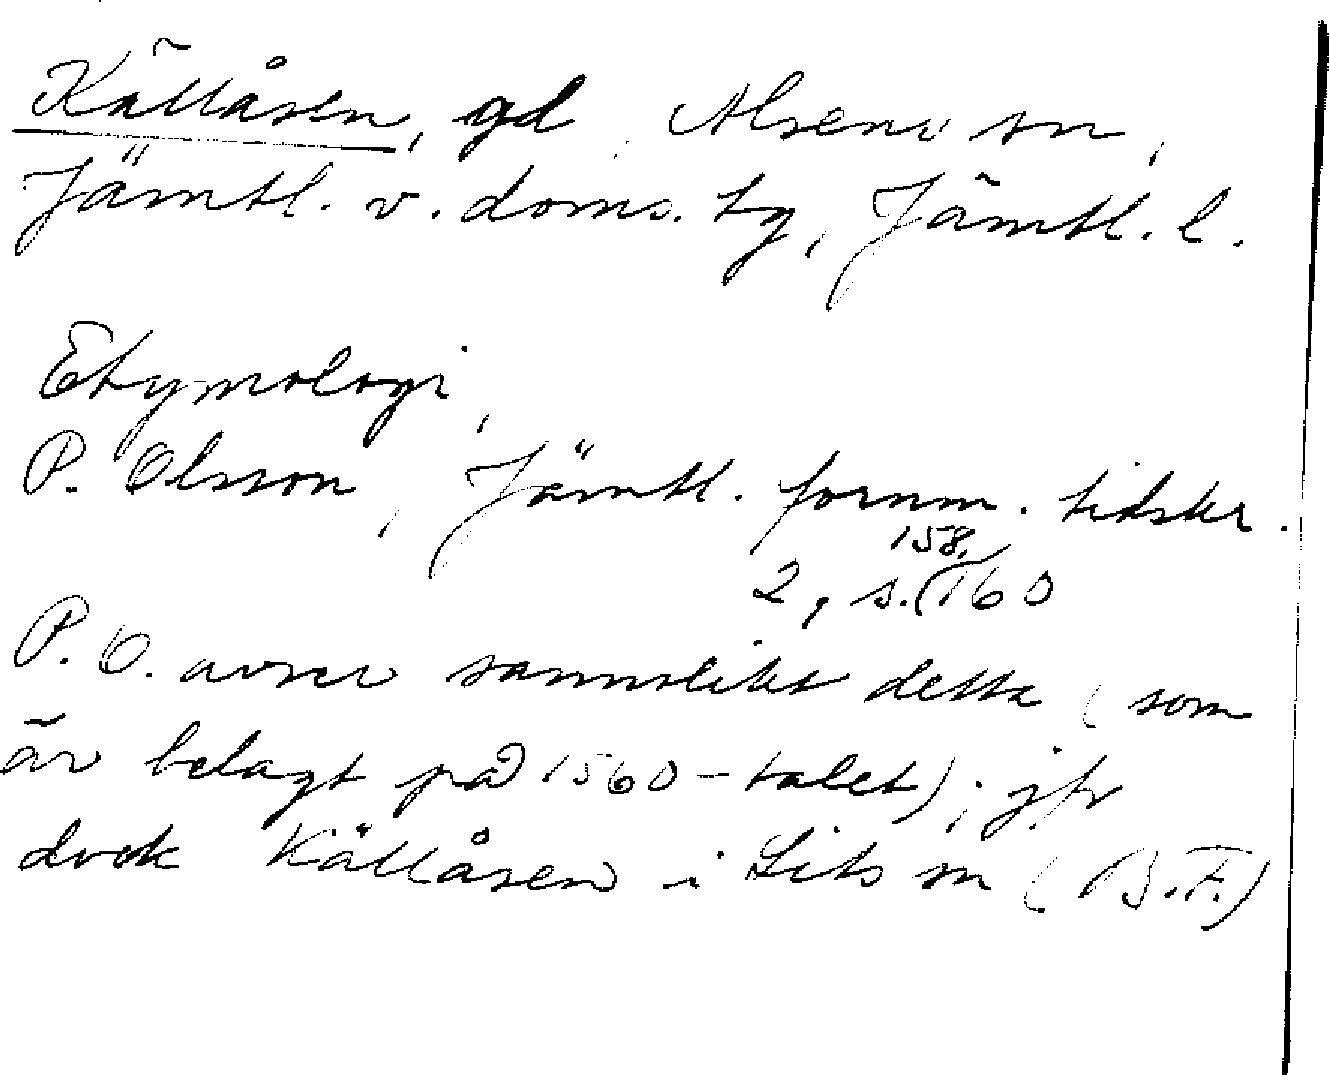 Källåsen, gd, Alsens sn,
Jämtl. v. doms. tg, Jämtl. l.
Etymologi,
P. Olsson, Jämtl. fornm. tidskr.
158,
2, s. (160
P. O. avser sannolikt detta (som
är belagt på 1560-talet); jfr
dock Källåsen i Lits sn (B.F.)